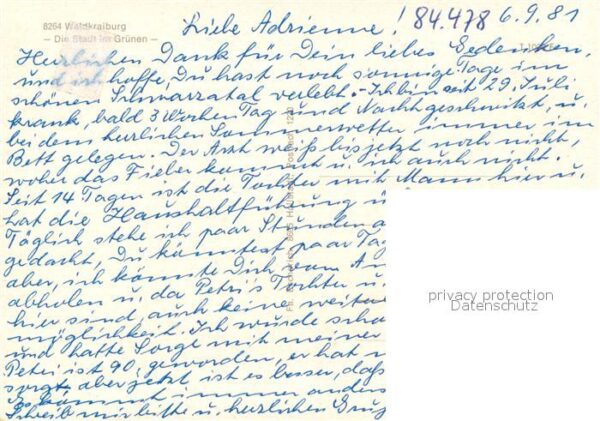 8264 Waldkraiburg
– Die Stadt im Grünen –
84.478 6.9.81
Liebe Adrienne!
Herzlichen Dank für Dein liebes Gedenken,
und ich hoffe, Du hast noch sonnige Tage im
schönen Schwarzatal verlebt. - Ich bin seit 29. Juli
krank, bald 3 Wochen Tag und Nacht geschwitzt, u.
bei dem herrlichen Sommerwetter immer im
Bett gelegen. Der Arzt weiß bis jetzt noch nicht,
woher das Fieber kommt u. ich auch nicht.
Seit 14 Tagen ist die Tochter mit Mann hier u.
hat die Haushaltführung ü
Täglich stehe ich paar Stunden a
gedacht, Du könntest paar Tag
aber, ich könnte Dich vom
abholen u. da Petri's Tochter u.
hier sind, auch keine weiter
möglichkeit. Ich wurde scho
und hatte Sorge mit meiner
Petri ist 90 geworden, er hat
sorgt, aber jetzt ist es besser, daß
Es kommt immer anders
Schreib mir bitte u. herzlichen Gruß
privacy protection
Datenschutz